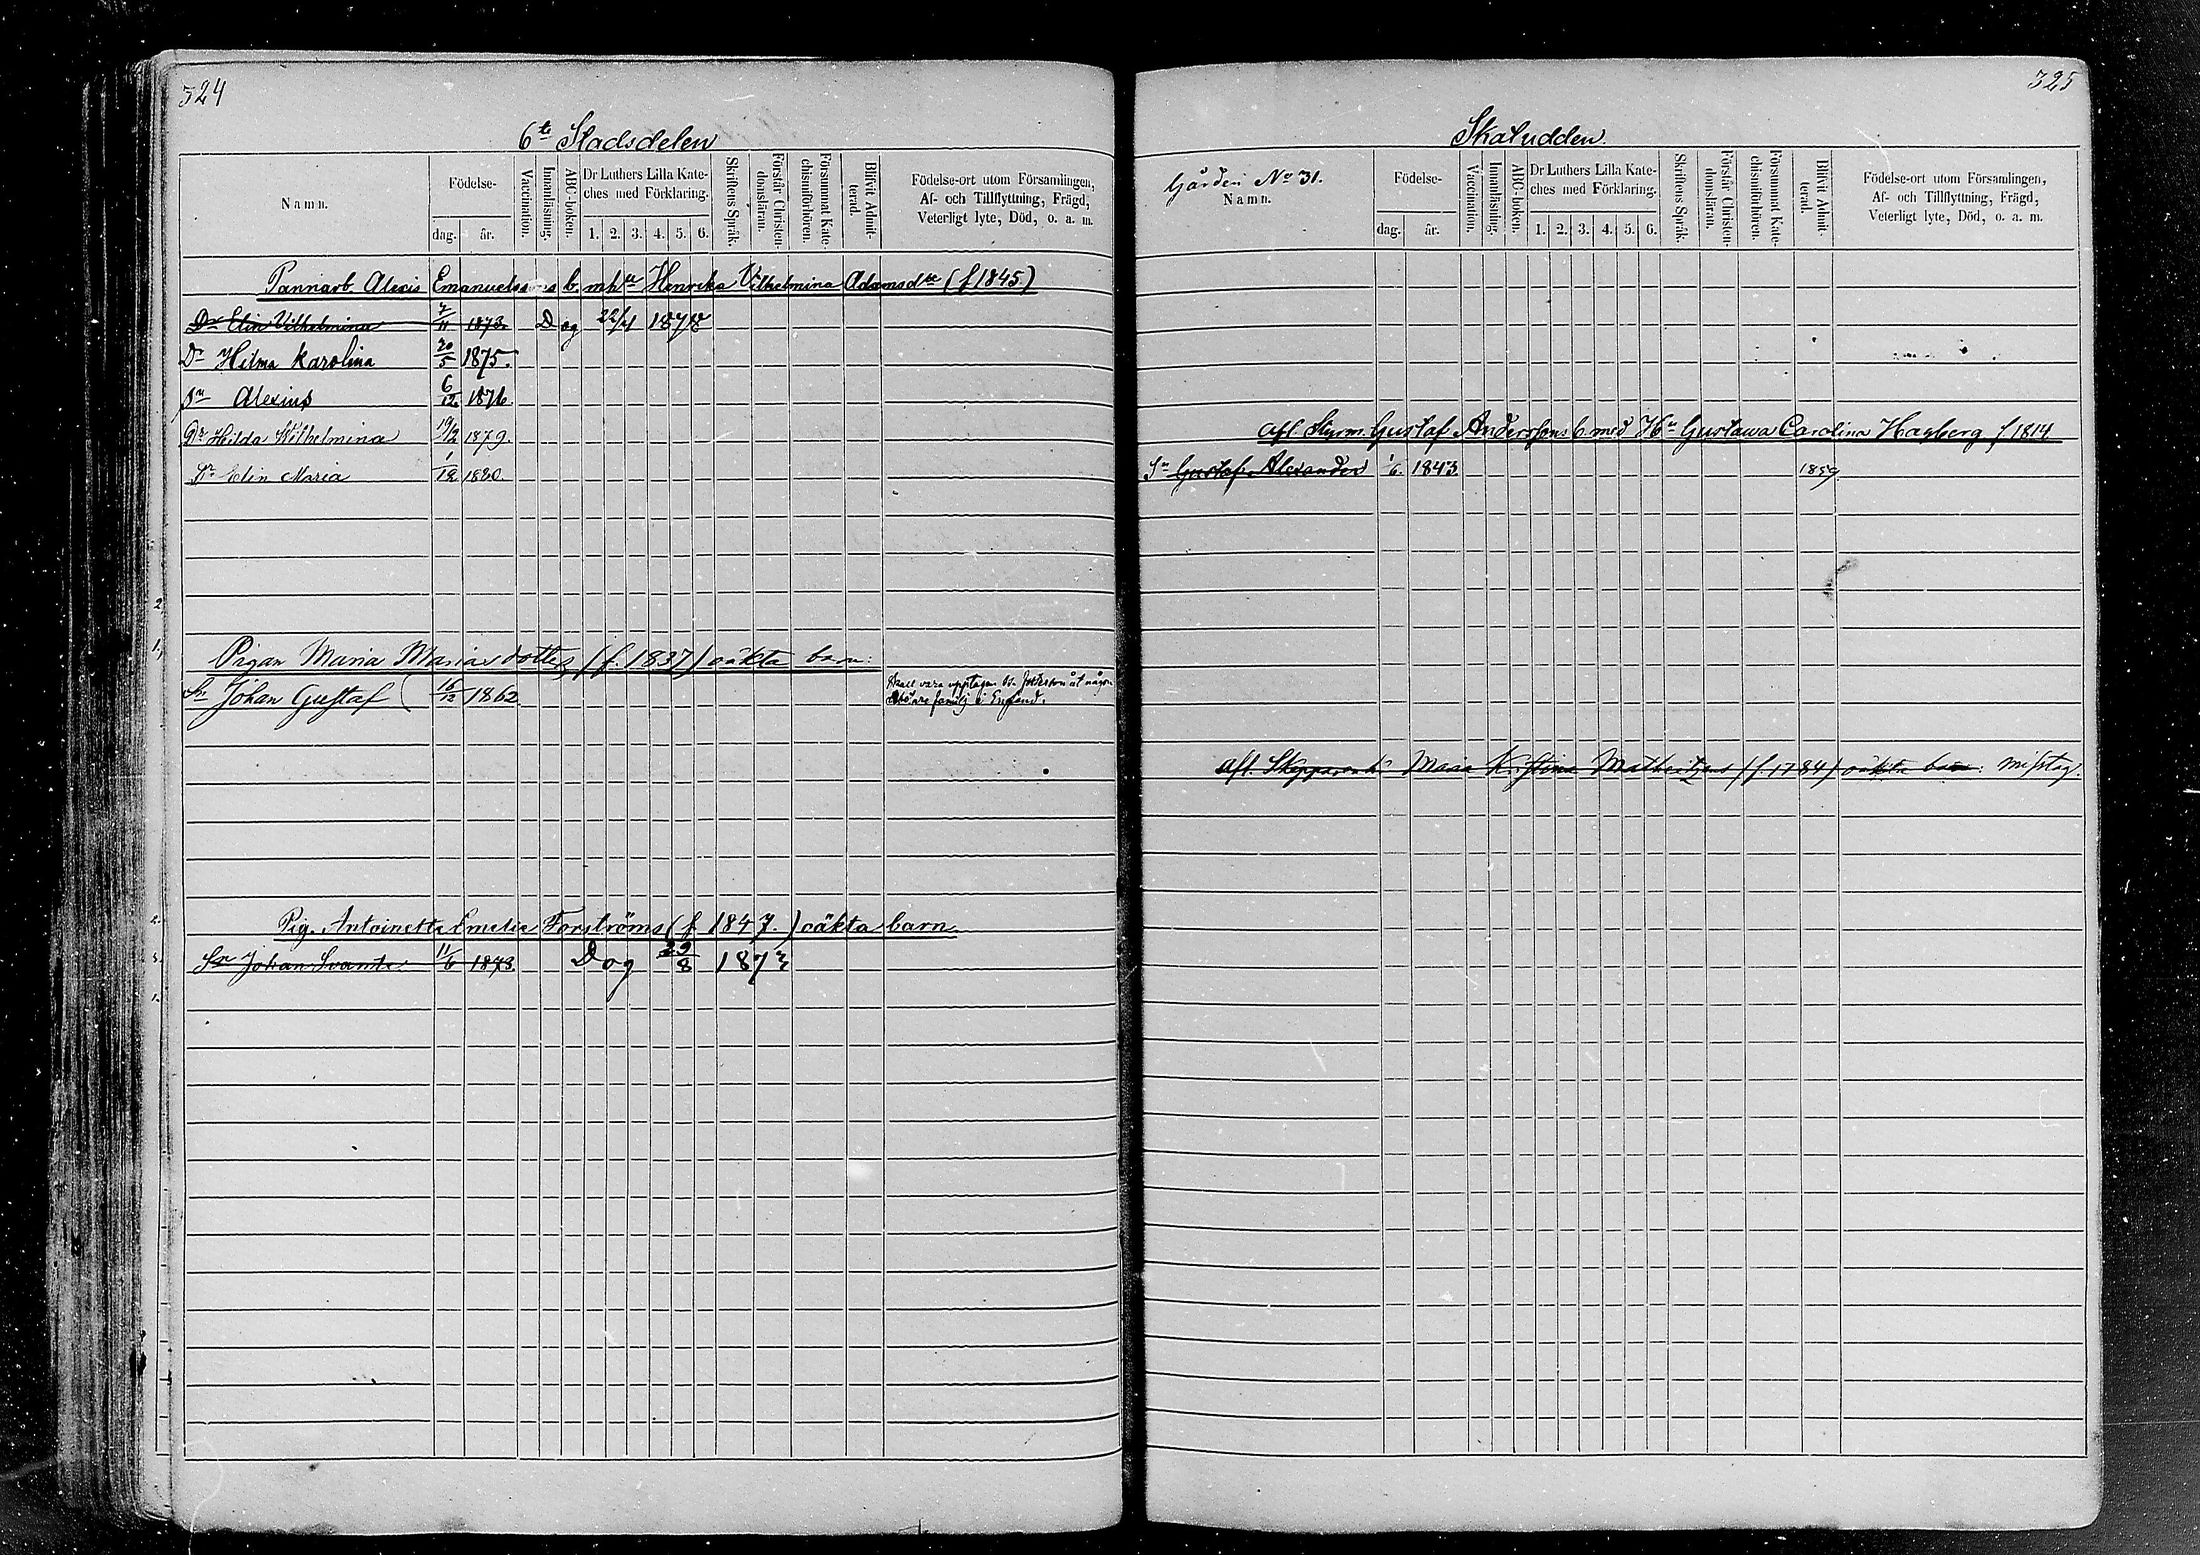 324
6te Stadsdelen
Namn.
Födelse-
dag. år.
Vaccination.
Innanläsning.
ABC-boken.
Dr Luthers Lilla Kate-
ches med Förklaring.
1. 2. 3. 4. 5. 6.
Skriftens Språk.
Förstår Christen-
domsläran.
Försummat Kate-
chismiförhören.
Blifvit Admit-
terad.
Födelse-ort utom Församlingen,
Af- och Tillflyttning, Frägd,
Veterligt lyte, Död, o. a. m.
Pannarb. Alexis Emanuelssons b. m hu Henrika Vilhelmina Adamsdtr (f 1845)
Dr Elin Vilhelmina 7/11 1873. Dog 22/4 1878
Dr Hilma Karolina 20/5 1875.
Sn Alexius 6/12 1876.
Dr Hilda Wilhelmina 19/2 1879.
Dr Elin Maria 1/12 1880.
Pigan Maria Mariasdotters (f. 1837) oäkta barn:
Sn Johan Gustaf 16/12 1862
Skall vara upptagen som fosterson åt någon
familj i England.
Pig. Antoinette Emelie Forströms (f 1847.) oäkta barn.
Sn Johan Svante. 11/6 1873. Dog 29/8 1873
325
Skatudden.
Gården No 31.
Namn.
Födelse-
dag. år.
Vaccination.
Innanläsning.
ABC-boken.
Dr Luthers Lilla Kate-
ches med Förklaring.
1. 2. 3. 4. 5. 6.
Skriftens Språk.
Förstår Christen-
domsläran.
Försummat Kate-
chismiförhören.
Blifvit Admit-
terad.
Födelse-ort utom Församlingen,
Af- och Tillflyttning, Frägd,
Veterligt lyte, Död, o. a. m.
Afl. Styrm. Gustaf Anderssons b med Hu Gustawa Carolina Hagberg f 1814
Sn Gustaf Alexander 1/6. 1843 1859
Afl. Maria Kristina (f. 1784) oäkta barn: misstag.